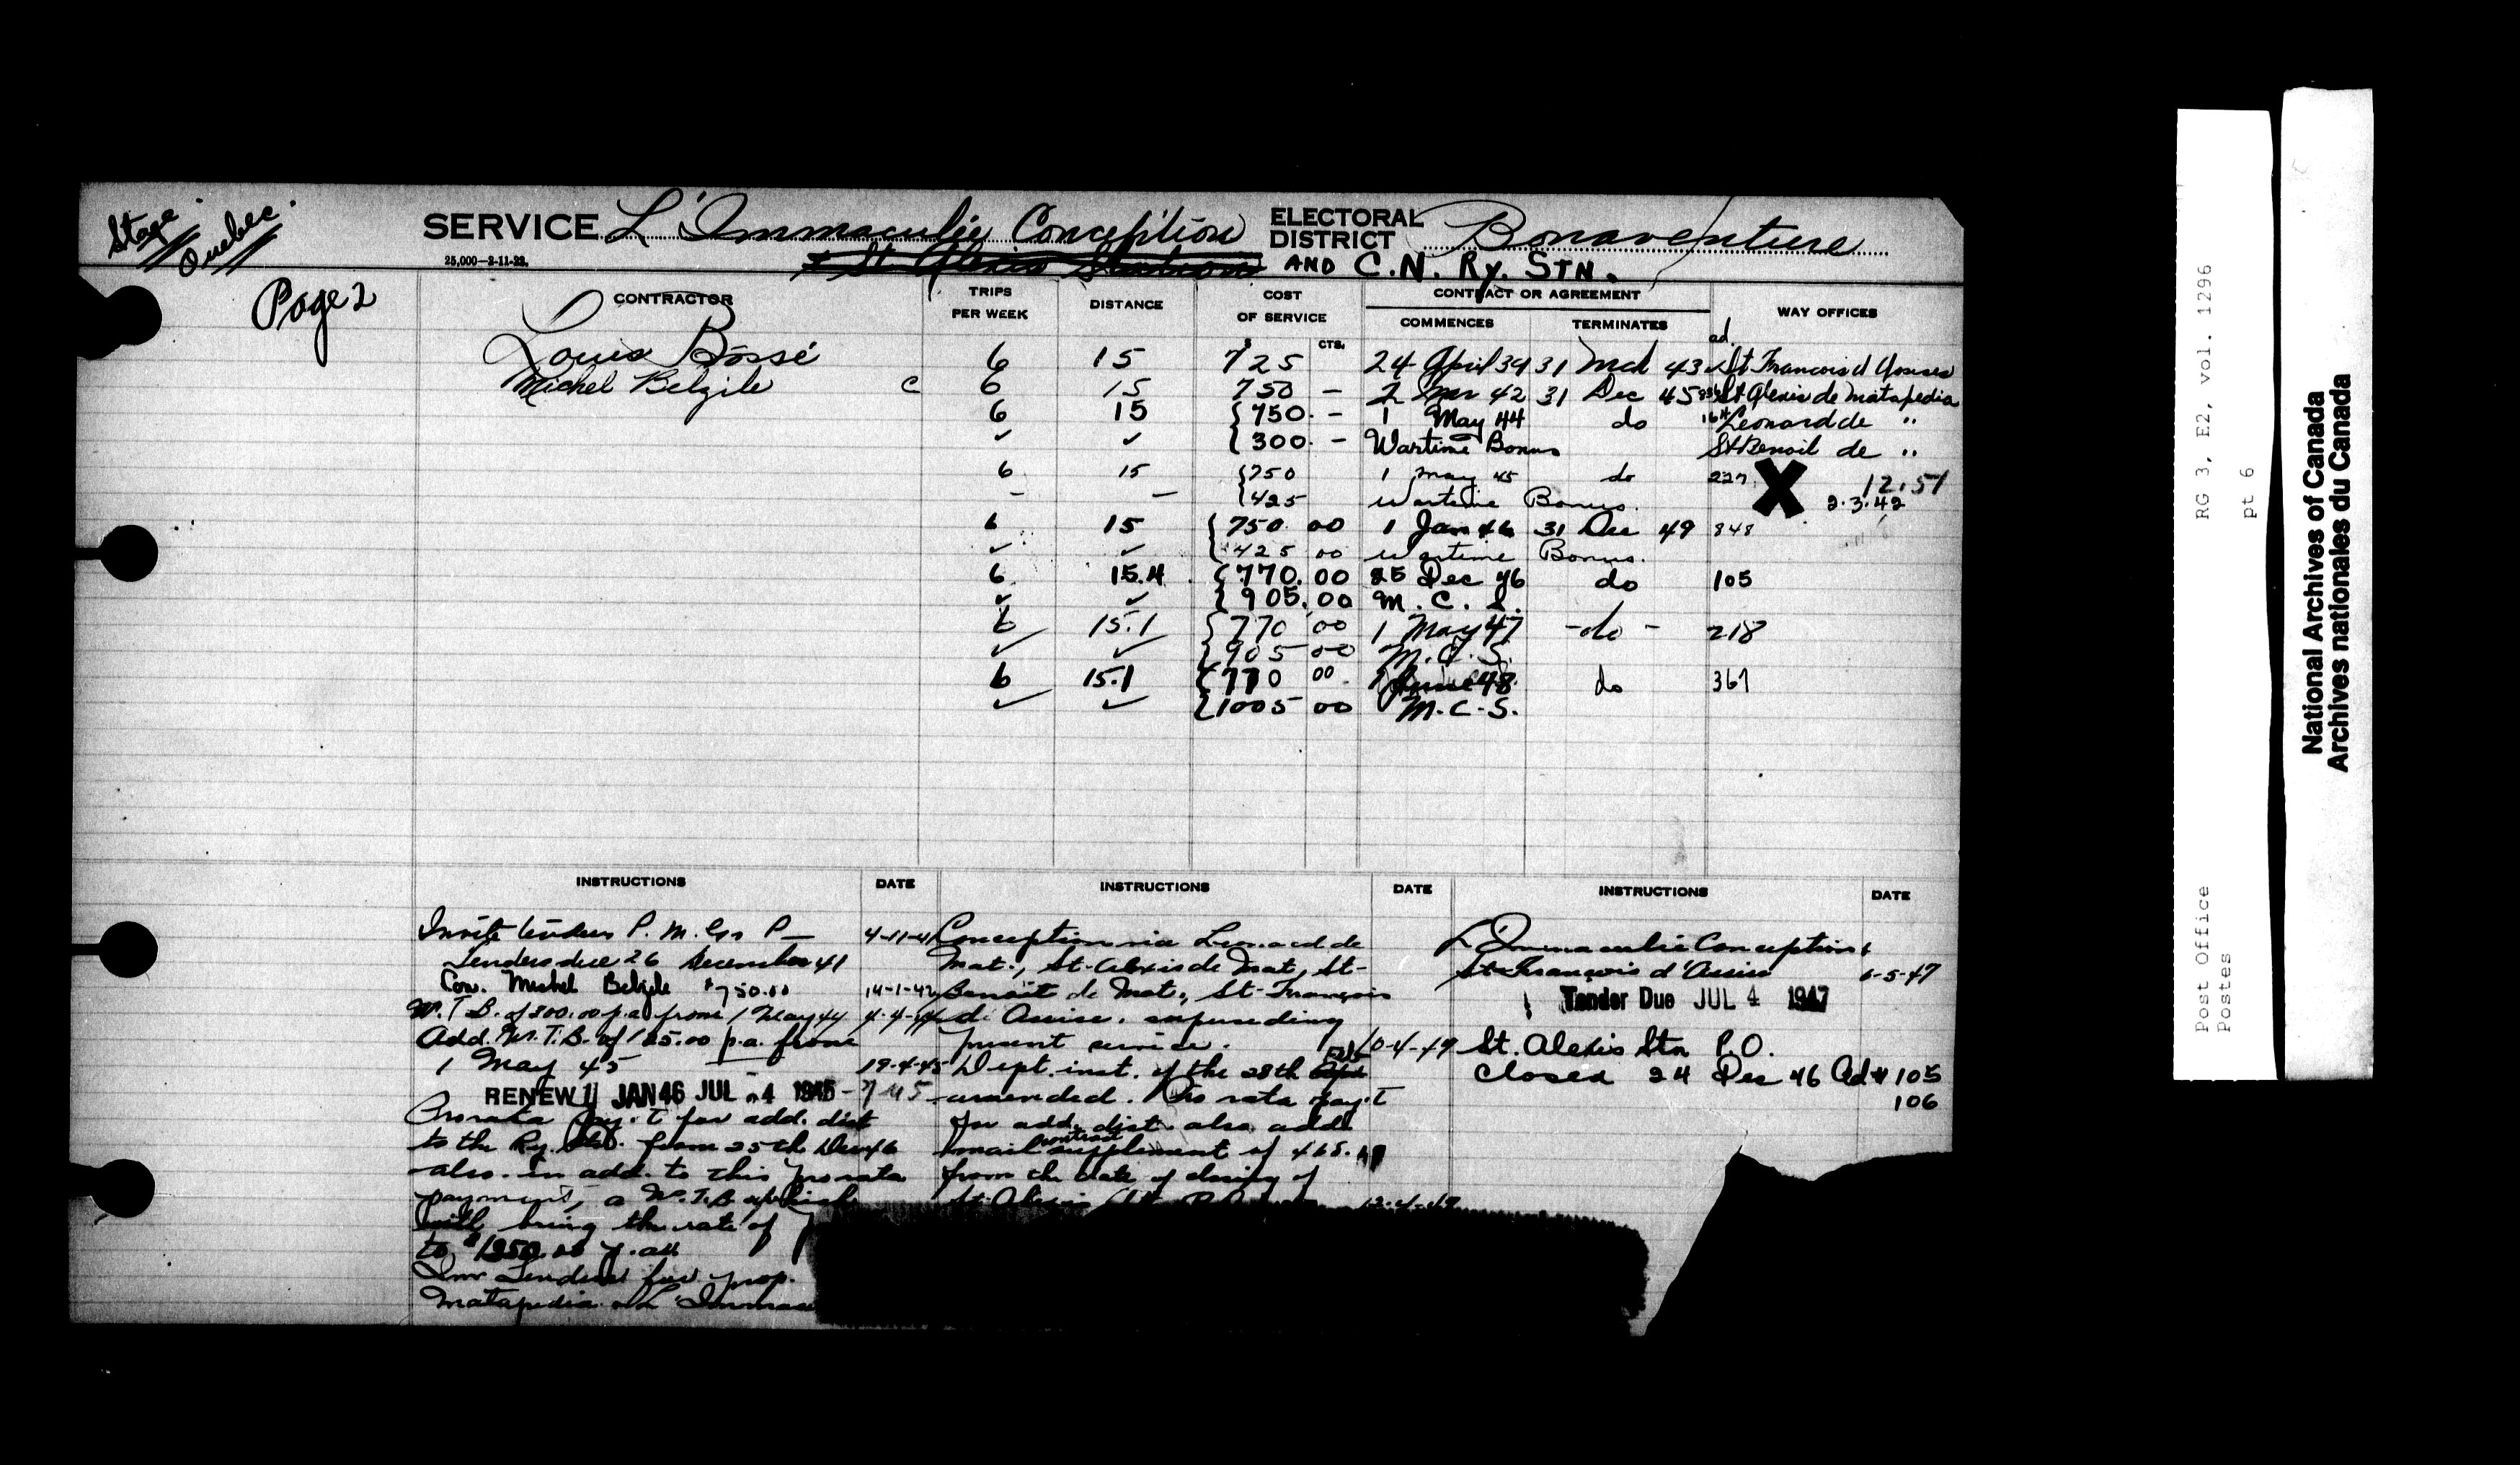 Stage
Quebec
SERVICE L'Immaculée Conception ELECTORAL DISTRICT Bonaventure
25,000—2-11-23.
& St Alexis Station AND C.N. Ry. STN.
Page 2
CONTRACTOR TRIPS PER WEEK DISTANCE COST OF SERVICE CTS. CONTRACT OR AGREEMENT COMMENCES TERMINATES WAY OFFICES
Louis Bossé 6 15 725 24 April 39 31 Mch 43 St Francois d'Assises
Michel Belzile C 6 15 750 – 2 Mar 42 31 Dec 45 St Alexis de Matapedia
6 15 750. – 1 May 44 do Leonard de "
✓ ✓ 300. – Wartime Bonus St Benoit de "
6 15 750 1 May 45 do 227 X 12.51
– – 425 Wartime Bonus. 2.3.42
6 15 750.00 1 Jan 46 31 Dec 49 848
✓ ✓ 425 00 Wartime Bonus.
6 15.4 770.00 25 Dec 46 do 105
✓ ✓ 905.00 M.C.S.
6 15.1 770 00 1 May 47 -do- 218
✓ ✓ 905 00 M.C.S.
6 15.1 770 00 1 June 48 do 367
✓ ✓ 1005 00 M.C.S.
INSTRUCTIONS DATE
Invite tenders P. M. Gs P— 4-11-41
Tenders due 26 December 41
Con. Michel Belzile $750.00 14-1-42
W.T.B. of 300.00 p.a. from 1 May 44 4-4-44
Add. W.T.B. of 125.00 p.a. from
1 May 45 19-4-45
RENEW 1 JAN 46 JUL -4 1945
Prorata pay't for add. dist
to the Ry. Stn. from 25th Dec 46
also in add. to this prorata
payment, a W.T.B. which
will bring the rate of
to $1250.00 p.an
Inv Tenders for prop.
Matapedia & L'Immac
INSTRUCTIONS DATE
Conception via Leonard de
Mat., St-Alexis de Mat, St-
Benoit de Mat., St-François
d'Assise. superseding
present service. 10-4-47
Dept. inst. of the 28th Feb
amended. Pro rata pay't
for add. dist. also add
mail contract supplement of 465.
from the date of closing of
St-Alexis Stn P.O. 12-4-47
INSTRUCTIONS DATE
L'Immaculée Conception &
St-François d'Assise 6-5-47
Tender Due JUL 4 1947
St. Alexis Stn P.O.
closed 24 Dec 46 Ad # 105
106
RG 3, E2, vol. 1296
pt 6
Post Office
Postes
National Archives of Canada
Archives nationales du Canada